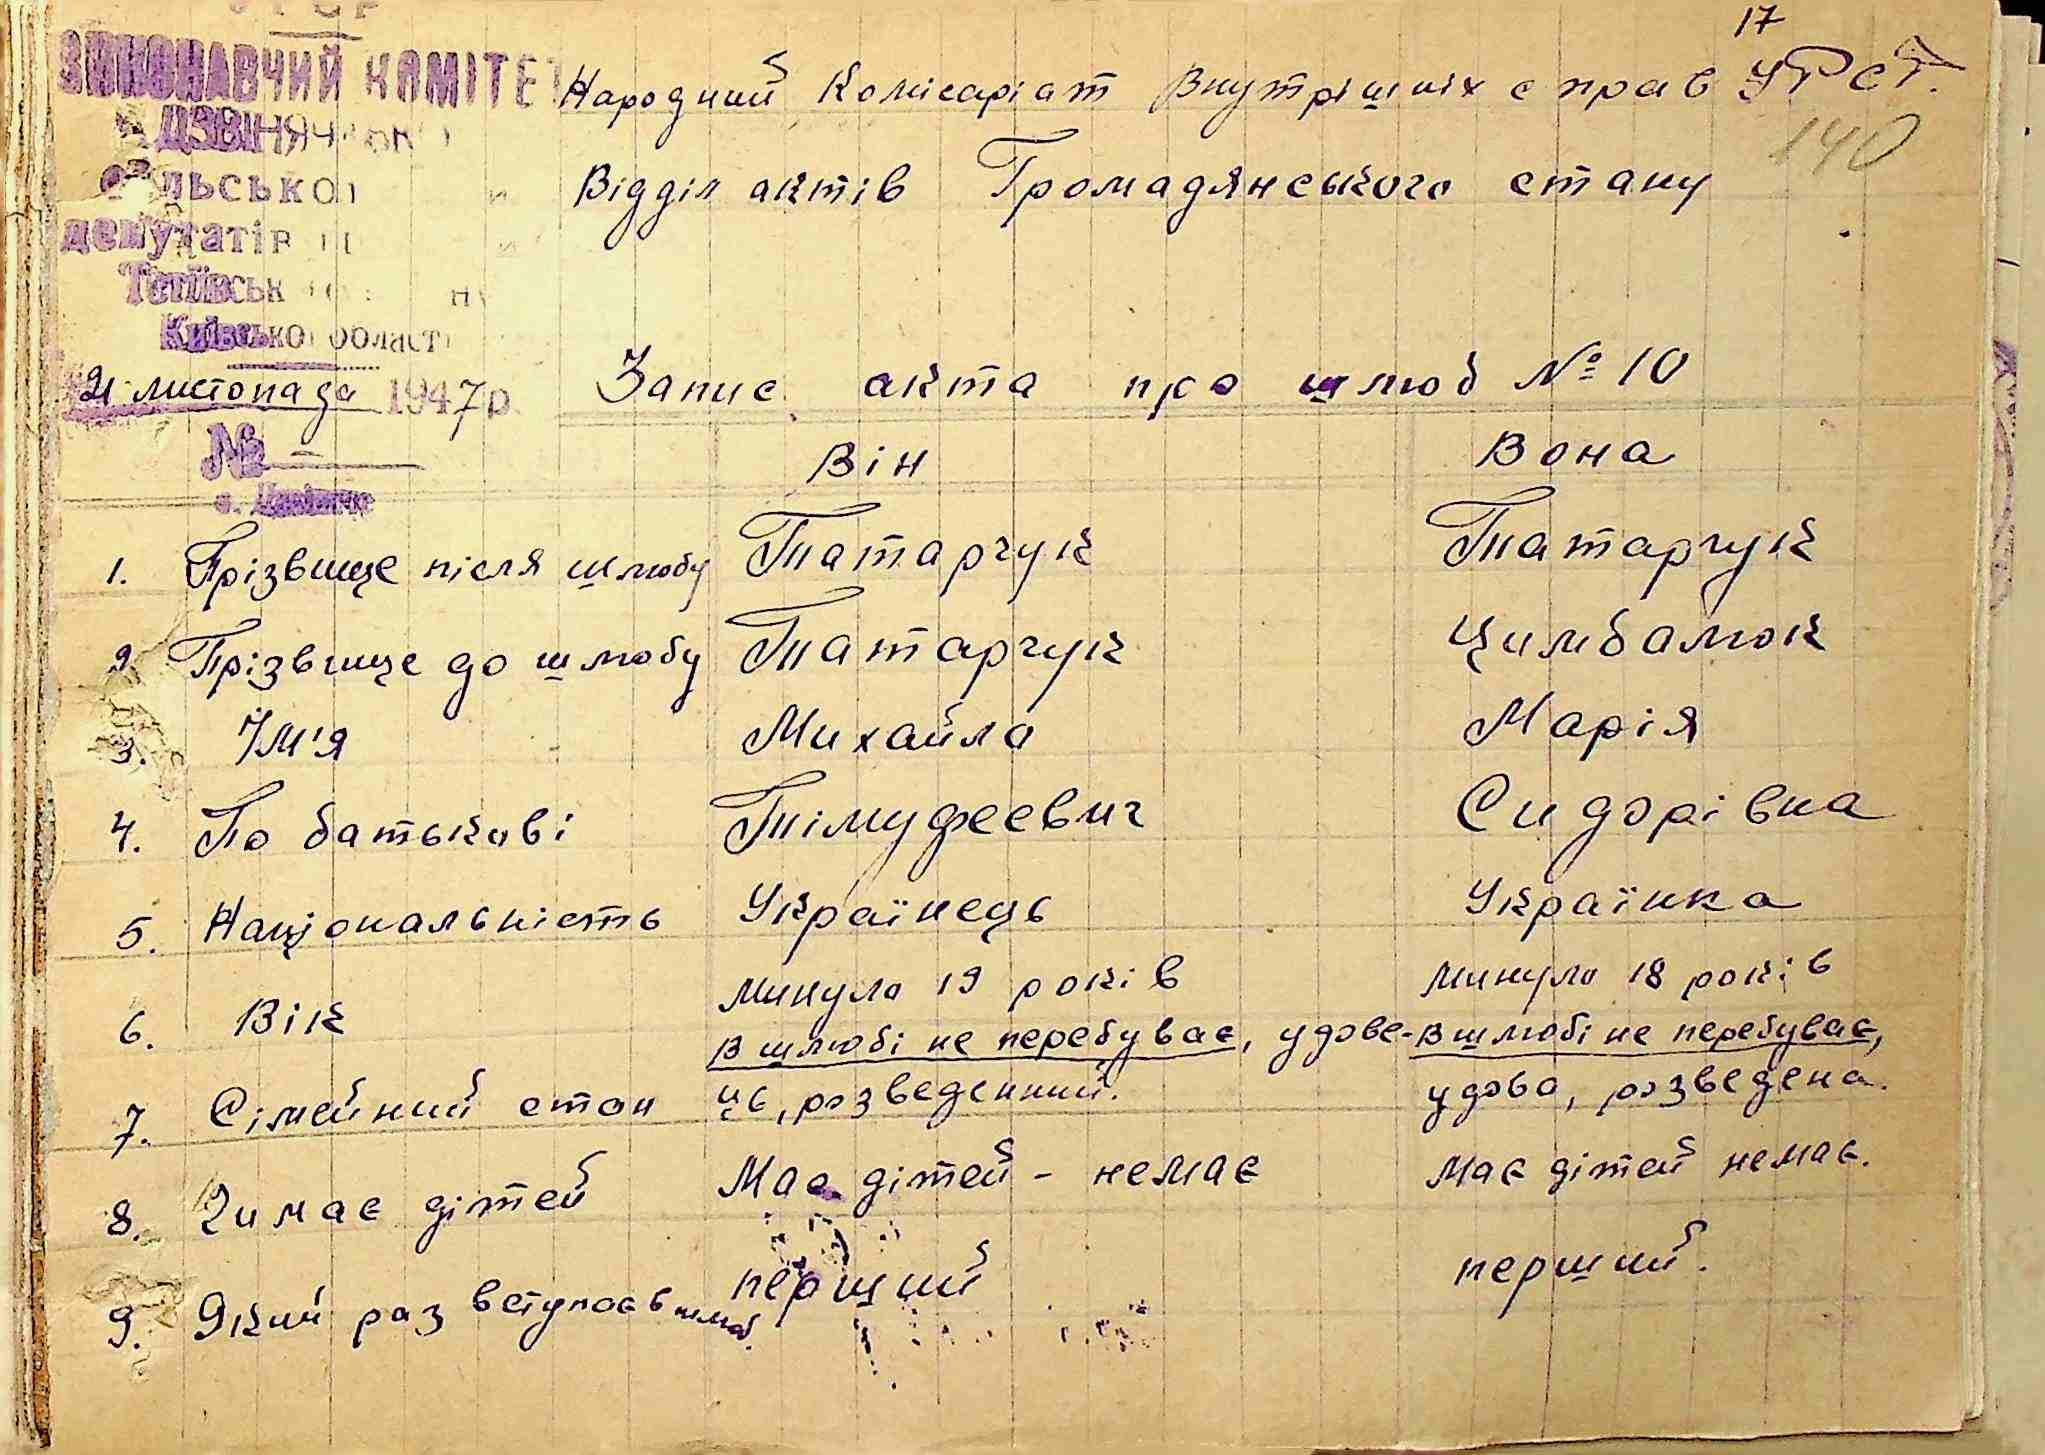 17
ВИКОНАВЧИЙ КОМІТЕТ
Народний Комісаріат Внутрішніх справ УРСР.
140
Відділ актів Громадянського стану
депутатів
Київської області
21 листопада 1947 р.
Запис акта про шлюб № 10
№ -
Він Вона
1. Прізвище після шлюбу Татарчук Татарчук
2. Прізвище до шлюбу Татарчук Цимбалюк
3. Їм'я Михайло Марія
4. По батькові Тімуфеевич Сидорівна
5. Національність Українець Українка
6. Вік минуло 19 років минуло 18 років
В шлюбі не перебуває, удове- В шлюбі не перебуває,
7. Сімейний стан ць, розведенний. удова, розведена.
8. Чи має дітей Має дітей - немає Має дітей немає.
9. Який раз вступає в шлюб. перший перший.